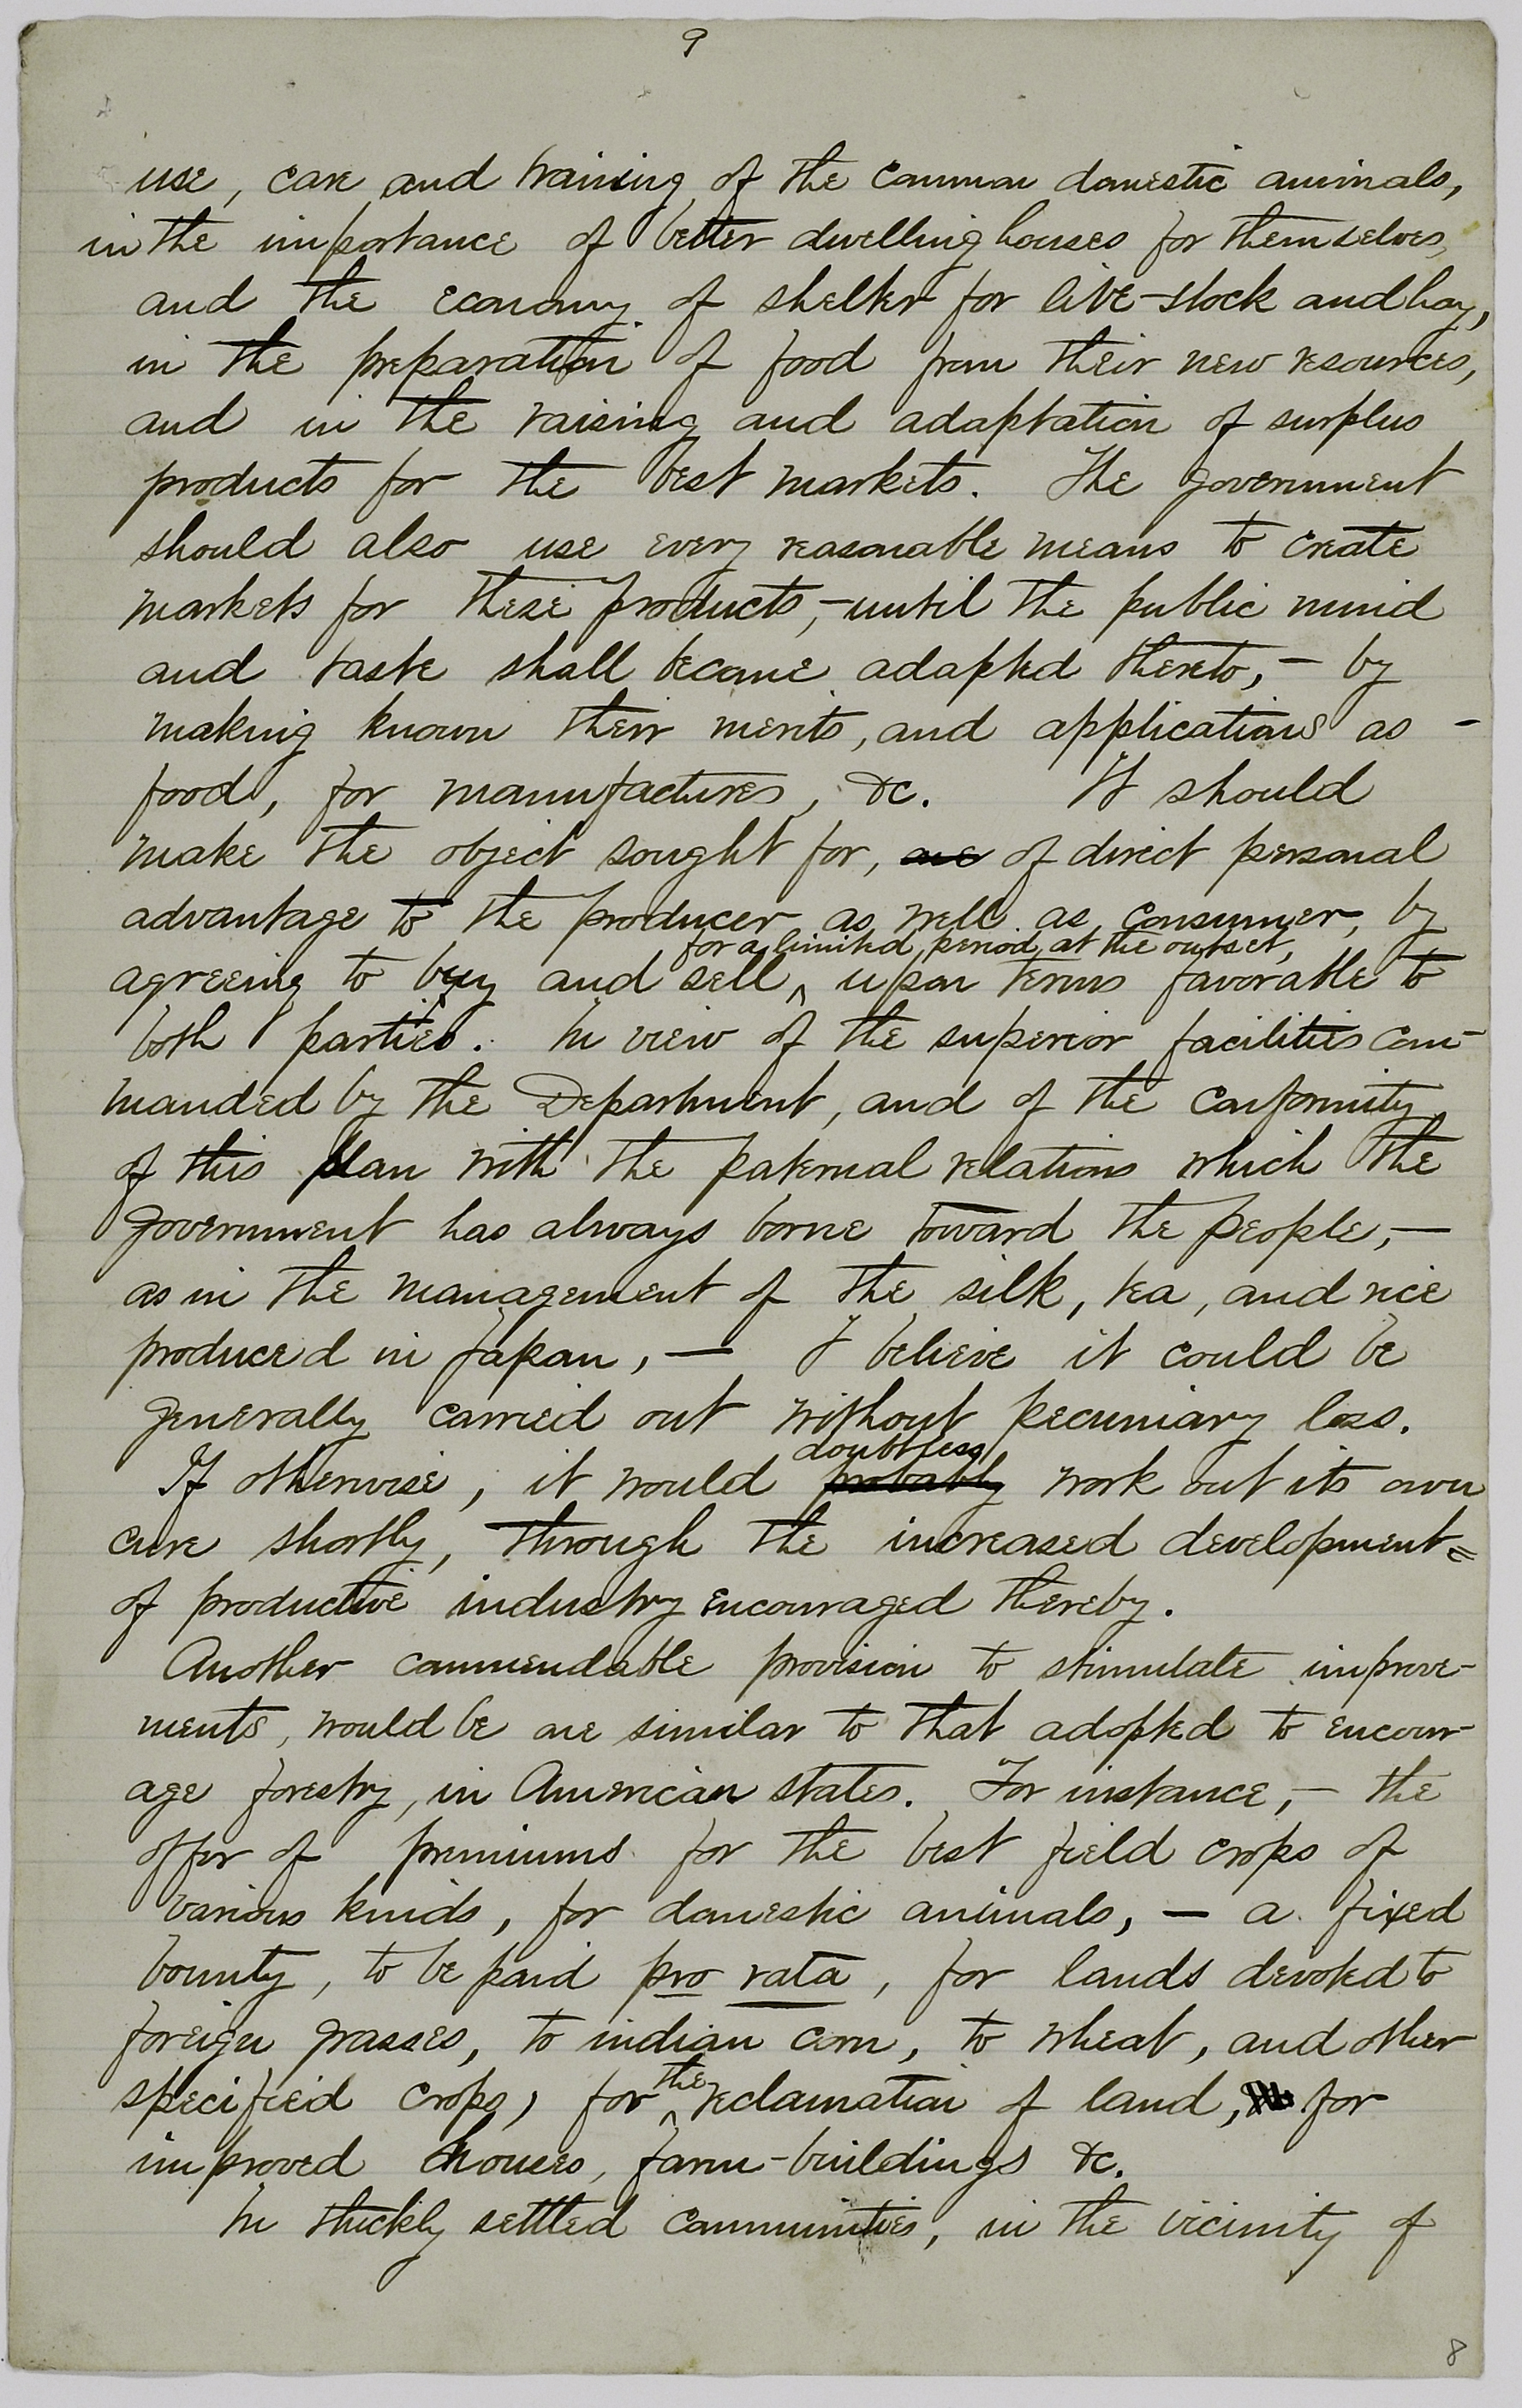 9
use, care and training of the common domestic animals,
in the importance of better dwelling houses for themselves,
and the economy of shelter for live-stock and hay,
in the preparation of food from their new resources,
and in the raising and adaptation of surplus
products for the best markets. The government
should also use every reasonable means to create
markets for these products,- until the public mind
and taste shall become adapted thereto,- by
making known their merits, and applications as -
food, for manufactures, &c. It should
make the object sought for, one of direct personal
advantage to the producer as well as consumer, by
for a limited period at the outset,
agreeing to buy and sell ^ upon terms favorable to
both parties. In view of the superior facilities com-
manded by the Department, and of the conformity
of this plan with the paternal relations which the
government has always borne toward the people,—
as in the management of the silk, tea, and rice
produced in Japan, — I believe it could be
generally carried out without pecuniary loss.
doubtless
If otherwise, it would probably work out its own
cure shortly, through the increased development=
of productive industry encouraged thereby.
Another commendable provision to stimulate improve-
ments, would be one similar to that adopted to encour-
age forestry, in American states. For instance,- the
offer of premiums for the best field crops of
various kinds, for domestic animals, — a fixed
bounty, to be paid pro rata, for lands devoted to
foreign grasses, to indian corn, to wheat, and other
the
specified crops, for ^ reclamation of land, for
improved houses, farm-buildings &c.
In thickly settled communities, in the vicinity of
8